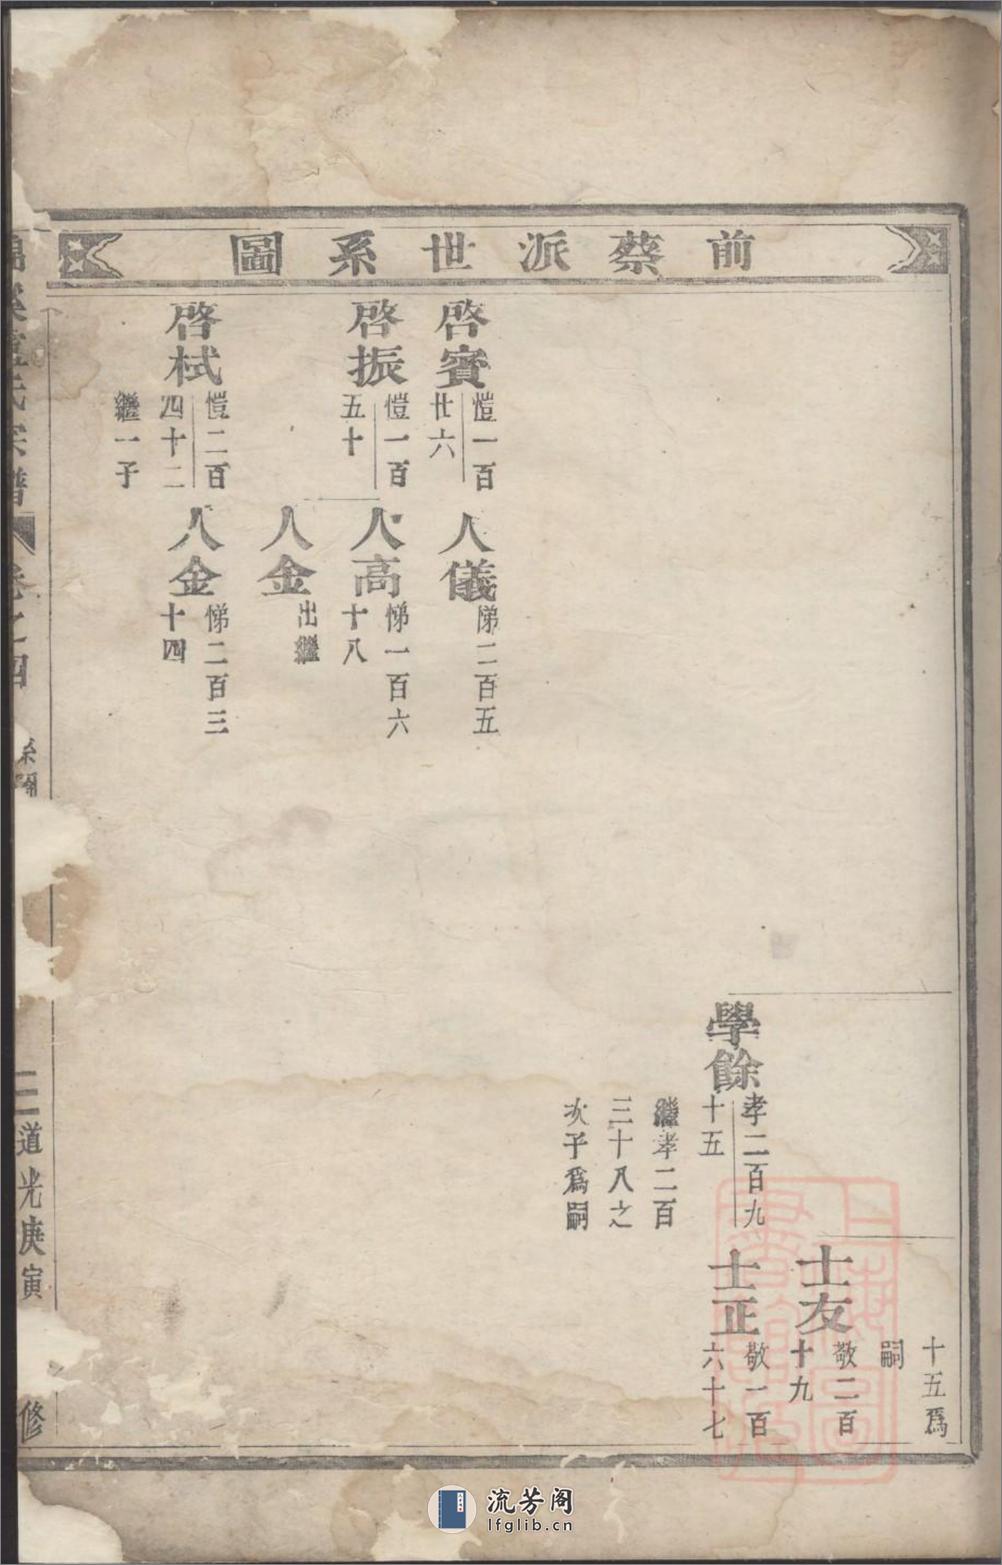 前蔡派世系圖
十五爲
嗣
士友
敬二百
十九
學餘
孝二百九
十五
繼孝二百
三十八之
次子爲嗣
士正
敬一百
六十七
啓賓
愷一百
廿六
人儀
悌二百五
啓振
愷一百
五十
人高
悌一百六
十八
人金
出繼
啓栻
愷二百
四十二
繼一子
人金
悌二百三
十四
氏宗譜
卷之四
系圖
二
道光庚寅
修
流芳阁
lfglib.cn